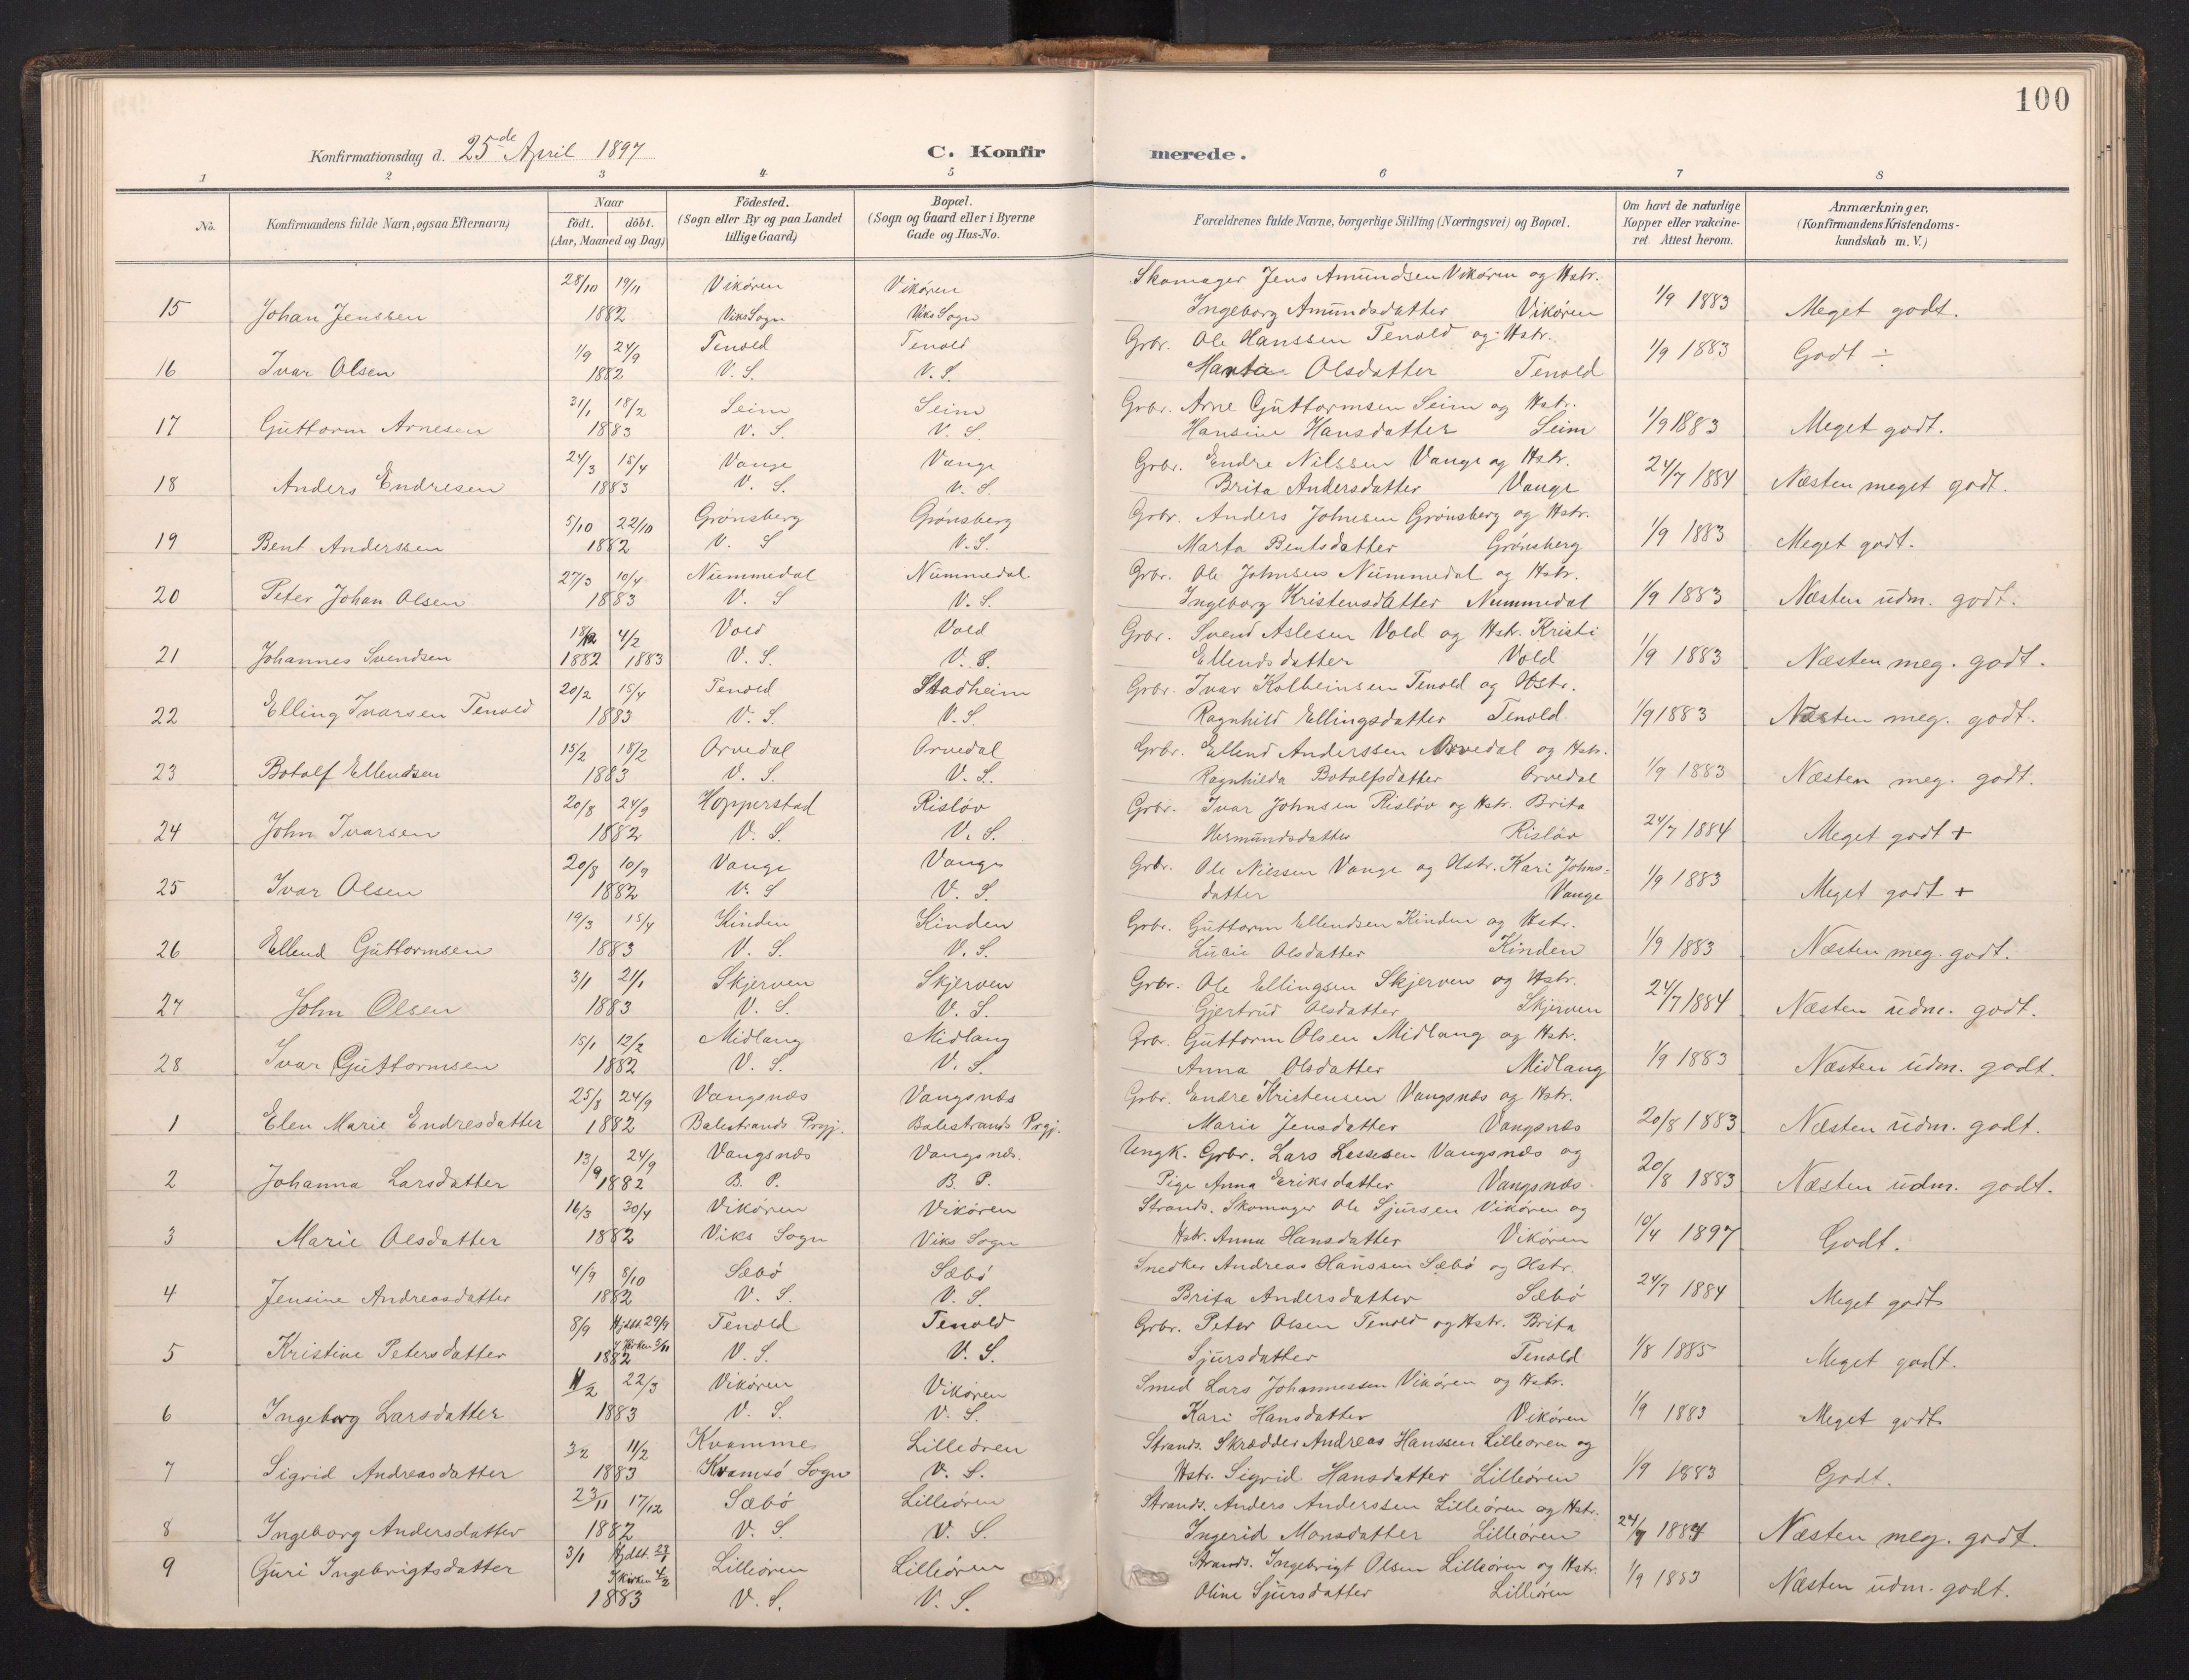 100
Konfirmationsdag d. 25de April 1897 C. Konfirmerede.
1 2 3 4 5 6 7 8
No. Konfirmandens fulde Navn, ogsaa Efternavn) Naar födt. döbt. (Aar, Maaned og Dag) Födested. (Sogn eller By og paa Landet tillige Gaard) Bopæl. (Sogn og Gaard eller i Byerne Gade og Hus-No. Forældrenes fulde Navne, borgerlige Stilling (Næringsvei) og Bopæl. Om havt de naturlige Kopper eller vakcineret. Attest herom. Anmærkninger. (Konfirmandens Kristendomskundskab m. V.)
28/10 19/11 Vikören Vikören Skomager Jens Amundsen Vikören og Hstr.
15 Johan Jenssen 1882 Viks Sogn Viks Sogn Ingeborg Amundsdatter Vikören 1/9 1883 Meget godt.
1/9 24/9 Tenold Tenold Grbr. Ole Hanssen Tenold og Hstr.
16 Ivar Olsen 1882 V. S. V. S. Marta Olsdatter Tenold 1/9 1883 Godt ÷
31/1 18/2 Seim Seim Grbr. Arne Guttormsen Seim og Hstr.
17 Guttorm Arnesen 1883 V. S. V. S. Hansine Hansdatter Seim 1/9 1883 Meget godt.
24/3 15/4 Vange Vange Grbr. Endre Nilssen Vange og Hstr.
18 Anders Endresen 1883 V. S. V. S. Brita Andersdatter Vange 24/7 1884 Næsten meget godt.
5/10 22/10 Grönsberg Grönsberg Grbr. Anders Johnsen Grönsberg og Hstr.
19 Bent Anderssen 1882 V. S V. S. Marta Bentsdatter Grönsberg 1/9 1883 Meget godt.
27/3 10/4 Nummedal Nummedal Grbr. Ole Johnsen Nummedal og Hstr.
20 Peter Johan Olsen 1883 V. S V. S. Ingeborg Kristensdatter Nummedal 1/9 1883 Næsten udm. godt.
18/12 4/2 Vold Vold Grbr. Svend Aslesen Vold og Hstr. Kristi
21 Johannes Svendsen 1882 1883 V. S. V. S. Ellendsdatter Vold 1/9 1883 Næsten meg. godt.
20/2 15/4 Tenold Stadheim Grbr. Ivar Kolbeinsen Tenold og Hstr.
22 Elling Ivarsen Tenold 1883 V. S. V. S. Ragnhild Ellingsdatter Tenold 1/9 1883 Næsten meg. godt.
15/2 18/2 Orvedal Orvedal Grbr. Ellend Anderssen Orvedal og Hstr.
23 Botolf Ellendsen 1883 V. S. V. S. Ragnhilda Botolfsdatter Orvedal 1/9 1883 Næsten meg. godt.
20/8 24/9 Hopperstad Rislöv Grbr. Ivar Johnsen Rislöv og Hstr. Brita
24 John Ivarsen 1882 V. S. V. S. Hermundsdatter Rislöv 24/7 1884 Meget godt +
20/8 10/9 Vange Vange Grbr. Ole Nilssen Vange og Hstr. Kari Johns=
25 Ivar Olsen 1882 V. S V. S. datter Vange 1/9 1883 Meget godt +
19/3 15/4 Kinden Kinden Grbr. Guttorm Ellendsen Kinden og Hstr.
26 Ellend Guttormsen 1883 V. S. V. S. Lucie Olsdatter Kinden 1/9 1883 Næsten meg. godt.
3/1 21/1 Skjerven Skjerven Grbr. Ole Ellingsen Skjerven og Hstr.
27 John Olsen 1883 V. S. V. S. Gjertrud Olsdatter Skjerven 24/7 1884 Næsten udm. godt.
15/1 12/2 Midlang Midlang Grbr. Guttorm Olsen Midlang og Hstr.
28 Ivar Guttormsen 1882 V. S. V. S. Anna Olsdatter Midlang 1/9 1883 Næsten udm. godt.
25/8 24/9 Vangsnæs Vangsnæs Grbr. Endre Kristensen Vangsnæs og Hstr.
1 Elen Marie Endresdatter 1882 Balestrands Prgj. Balestrands Prgj. Marie Jensdatter Vangsnæs 20/8 1883 Næsten udm. godt.
13/9 24/9 Vangsnæs Vangsnæs. Ungk. Grbr. Lars Lassesen Vangsnæs og
2 Johanna Larsdatter 1882 B. P. B. P. Pige Anna Eriksdatter Vangsnæs. 20/8 1883 Næsten udm. godt.
16/3 30/4 Vikören Vikören Strands. Skomager Ole Sjursen Vikören og
3 Marie Olsdatter 1882 Viks Sogn Viks Sogn Hstr. Anna Hansdatter Vikören 10/4 1897 Godt.
4/9 8/10 Sæbö Sæbö Snedker Andreas Hanssen Sæbö og Hstr.
4 Jensine Andreasdatter 1882 V. S. V. S. Brita Andersdatter Sæbö 24/7 1884 Meget godt
8/9 Hjdbt. 29/9 Tenold Tenold Grbr. Peter Olsen Tenold og Hstr. Brita
5 Kristine Petersdatter I Kirken 5/11 1882 V. S. V. S. Sjursdatter Tenold 1/8 1885 Meget godt.
11/2 22/3 Vikören Vikören Smed Lars Johannessen Vikören og Hstr.
6 Ingeborg Larsdatter 1883 V. S. V. S. Kari Hansdatter Vikören 1/9 1883 Meget godt
3/2 11/2 Kvamme Lilleören Strands. Skrædder Andreas Hanssen Lilleören og
7 Sigrid Andreasdatter 1883 Kvamsö Sogn V. S. Hstr. Sigrid Hansdatter Lilleören 1/9 1883 Godt.
23/11 17/12 Sæbö Lilleören Strands. Anders Anderssen Lilleören og Hstr.
8 Ingeborg Andersdatter 1882 V. S. V. S. Ingerid Monsdatter Lilleören 24/7 1884 Næsten meg. godt.
3/1 Hjdbt. 23/1 Lilleören Lilleören Strands. Ingebrigt Olsen Lilleören og Hstr.
9 Guri Ingebrigtsdatter I Kirken 4/2 1883 V. S. V. S. Oline Sjursdatter Lilleören 1/9 1883 Næsten udm. godt.